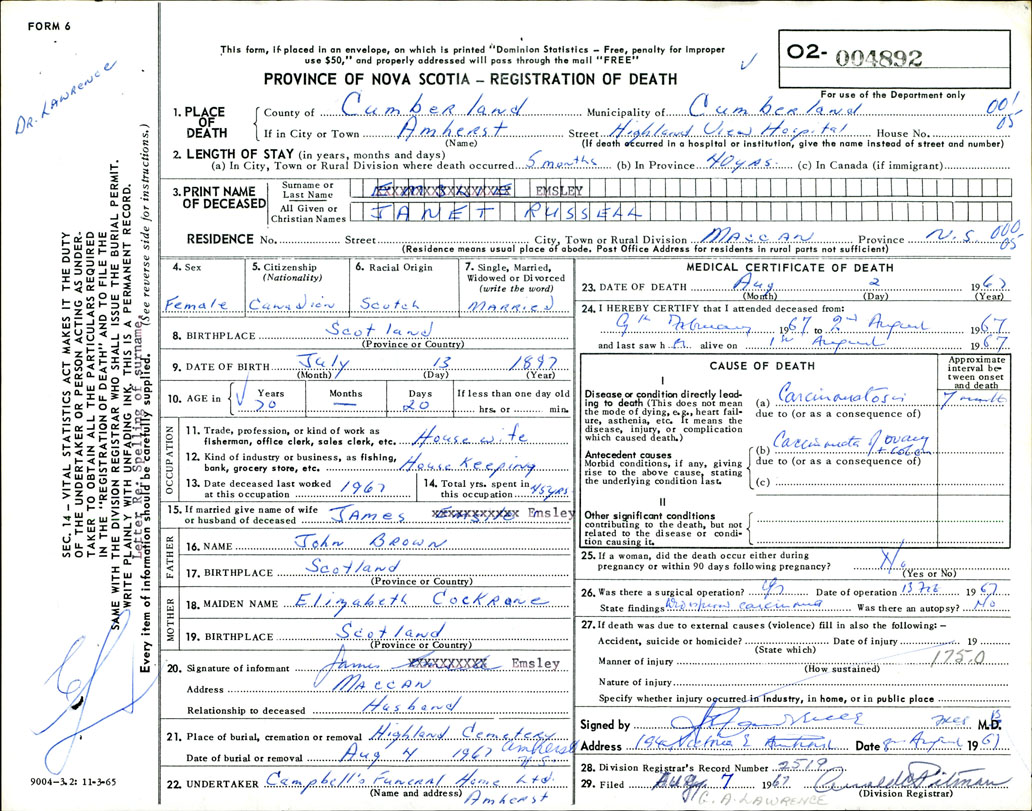 FORM 6
This form, if placed in an envelope, on which is printed "Dominion Statistics – Free, penalty for improper
use $50," and properly addressed will pass through the mail "FREE"
PROVINCE OF NOVA SCOTIA – REGISTRATION OF DEATH
02- 004892
For use of the Department only
DR. LAWRENCE
1. PLACE OF DEATH County of Cumberland Municipality of Cumberland 001
If in City or Town Amherst Street Highland View Hospital House No. 05
(Name) (If death occurred in a hospital or institution, give the name instead of street and number)
2. LENGTH OF STAY (in years, months and days)
(a) In City, Town or Rural Division where death occurred 5 months (b) In Province 40 yrs. (c) In Canada (if immigrant)
3. PRINT NAME OF DECEASED Surname or Last Name EMSLEY
All Given or Christian Names JANET RUSSELL
RESIDENCE No. Street City, Town or Rural Division MACCAN Province N.S. 000
05
(Residence means usual place of abode. Post Office Address for residents in rural parts not sufficient)
4. Sex Female
5. Citizenship (Nationality) Canadian
6. Racial Origin Scotch
7. Single, Married, Widowed or Divorced (write the word) MARRIED
8. BIRTHPLACE Scotland
(Province or Country)
9. DATE OF BIRTH July 13 1897
(Month) (Day) (Year)
10. AGE in Years 70 Months — Days 20 If less than one day old hrs. or min.
OCCUPATION
11. Trade, profession, or kind of work as fisherman, office clerk, sales clerk, etc. House wife
12. Kind of industry or business, as fishing, bank, grocery store, etc. House Keeping
13. Date deceased last worked at this occupation 1967
14. Total yrs. spent in this occupation 45 yrs
15. If married give name of wife or husband of deceased JAMES Emsley
FATHER
16. NAME John BROWN
17. BIRTHPLACE Scotland
(Province or Country)
MOTHER
18. MAIDEN NAME Elizabeth Cockrane
19. BIRTHPLACE Scotland
(Province or Country)
20. Signature of informant James Emsley
Address MACCAN
Relationship to deceased Husband
21. Place of burial, cremation or removal Highland Cemetery
Amherst N.S.
Date of burial or removal Aug 4 1967
22. UNDERTAKER Campbell's Funeral Home Ltd.
(Name and address) Amherst
9004–3.2: 11-3-65
MEDICAL CERTIFICATE OF DEATH
23. DATE OF DEATH Aug 2 1967
(Month) (Day) (Year)
24. I HEREBY CERTIFY that I attended deceased from:
9th February 1967 to 2nd August 1967
and last saw h er alive on 1st August 1967
CAUSE OF DEATH
Approximate interval between onset and death
I
Disease or condition directly leading to death (This does not mean the mode of dying, e.g., heart failure, asthenia, etc. It means the disease, injury, or complication which caused death.)
(a) Carcinomatosis 7 months
due to (or as a consequence of)
Antecedent causes
Morbid conditions, if any, giving rise to the above cause, stating the underlying condition last.
(b) Carcinomata of ovary + colon
due to (or as a consequence of)
(c)
II
Other significant conditions
contributing to the death, but not related to the disease or condition causing it.
25. If a woman, did the death occur either during pregnancy or within 90 days following pregnancy? No
(Yes or No)
26. Was there a surgical operation? Yes Date of operation 13 Feb 1967
State findings carcinoma Was there an autopsy? No
27. If death was due to external causes (violence) fill in also the following: –
Accident, suicide or homicide? Date of injury 19
(State which)
Manner of injury 175.0
(How sustained)
Nature of injury
Specify whether injury occurred in industry, in home, or in public place
Signed by M.D.
Address Victoria E Amherst Date 8 August 1967
28. Division Registrar's Record Number 2519
29. Filed Aug 7 1967
(Division Registrar)
G. A. LAWRENCE
SEC. 14 – VITAL STATISTICS ACT MAKES IT THE DUTY
OF THE UNDERTAKER OR PERSON ACTING AS UNDER-
TAKER TO OBTAIN ALL THE PARTICULARS REQUIRED
IN THE "REGISTRATION OF DEATH" AND TO FILE THE
SAME WITH THE DIVISION REGISTRAR WHO SHALL ISSUE THE BURIAL PERMIT.
WRITE PLAINLY WITH UNFADING INK. THIS IS A PERMANENT RECORD.
Letter Re: Spelling of surname
Every item of information should be carefully supplied. (See reverse side for instructions.)